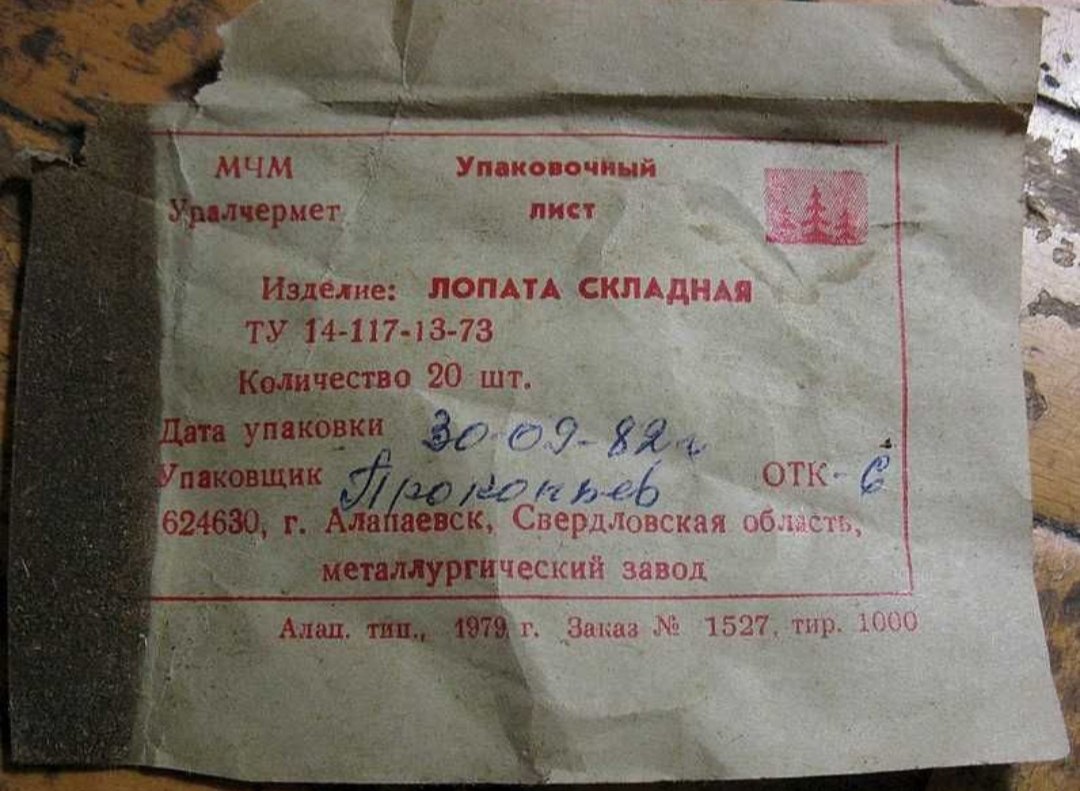 МЧМ Упаковочный
Уралчермет лист
Изделие: ЛОПАТА СКЛАДНАЯ
ТУ 14-117-13-73
Количество 20 шт.
Дата упаковки 30-09-82г
Упаковщик Прокопьев ОТК-6
624630, г. Алапаевск, Свердловская область,
металлургический завод
Алап. тип., 1979 г. Заказ № 1527, тир. 1000